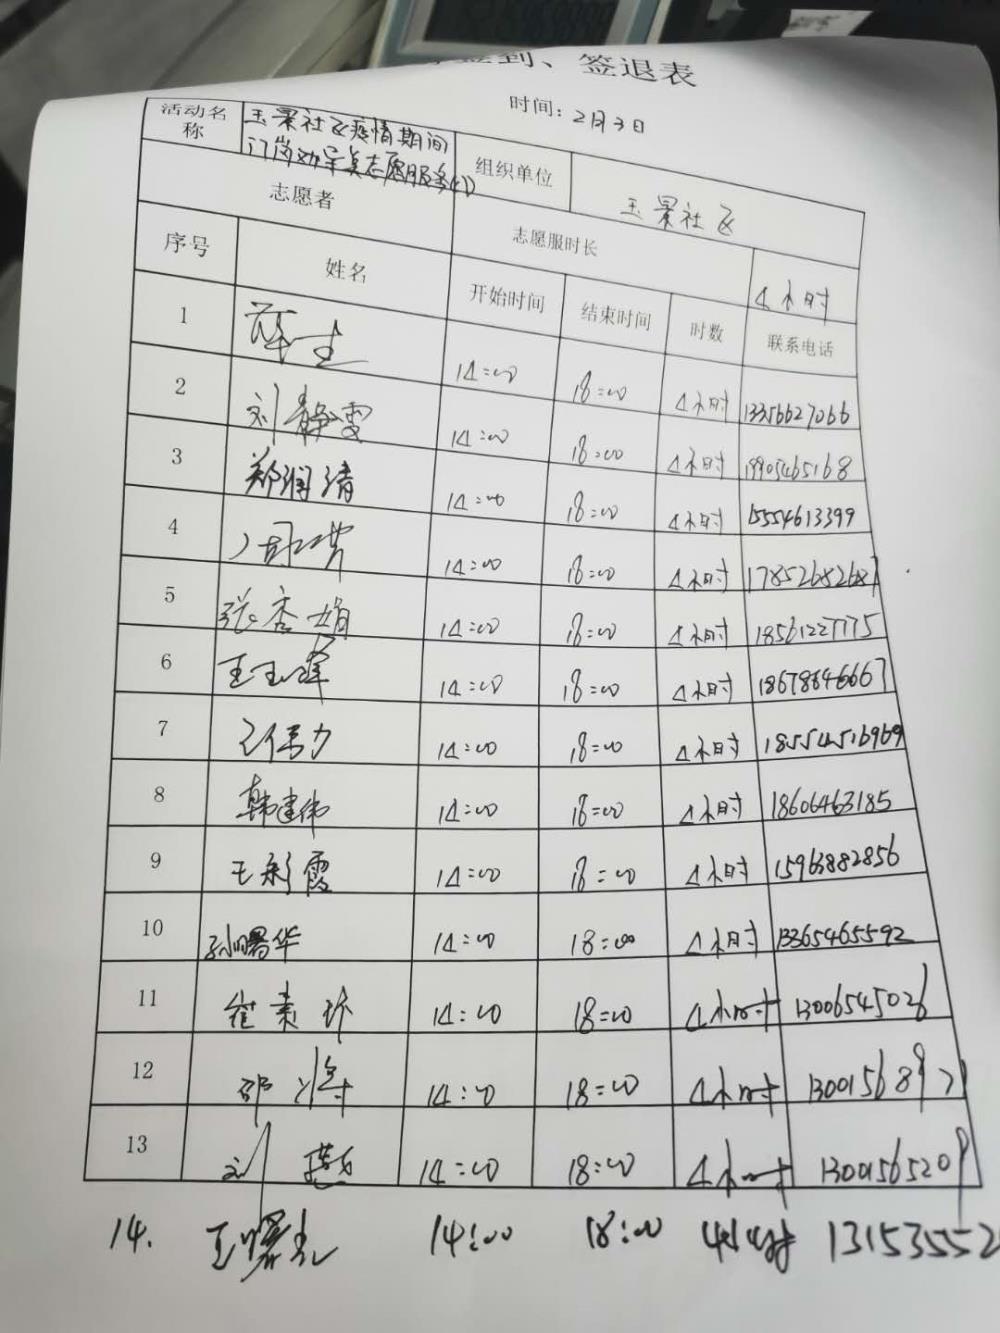 签到、签退表
时间：2月3日
活动名称 玉景社区疫情期间门岗劝导员志愿服务(1) 组织单位 玉景社区
志愿者 志愿服时长 4小时
序号 姓名 开始时间 结束时间 时数 联系电话
1 14:00 18:00 4小时 13356627066
2 刘静雯 14:00 18:00 4小时 19905465168
3 郑润清 14:00 18:00 4小时 15554613399
4 14:00 18:00 4小时
5 张杏娟 14:00 18:00 4小时 18561227775
6 王玉峰 14:00 18:00 4小时 18678646667
7 王伟力 14:00 18:00 4小时 18554516969
8 韩建伟 14:00 18:00 4小时 18606463185
9 王彩霞 14:00 18:00 4小时 15963882856
10 孙曙华 14:00 18:00 4小时 13365465592
11 崔素珍 14:00 18:00 4小时 13006545026
12 14:00 18:00 4小时
13 刘燕 14:00 18:00 4小时 13001565209
14. 14:00 18:00 4小时 131535552